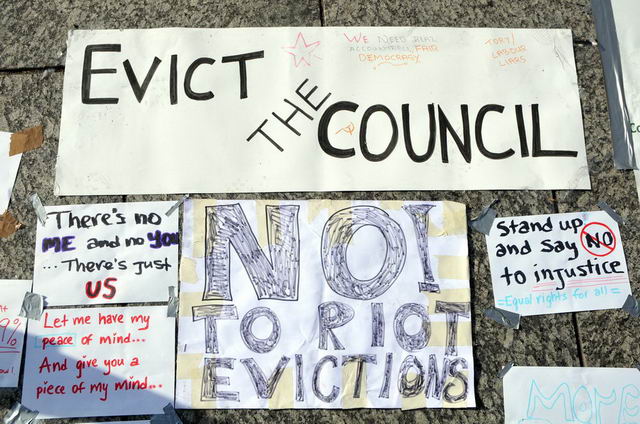 EVICT
THE
COUNCIL
WE NEED REAL
ACCOUNTABLE, FAIR
DEMOCRACY
TORY/
LABOUR
LIARS
There's no
ME and no YOU
...There's just
US
NO!
TO RIOT
EVICTIONS
Stand up
and Say NO
to injustice
=Equal rights for all=
Let me have my
peace of mind...
And give you a
piece of my mind...
9%
MORE